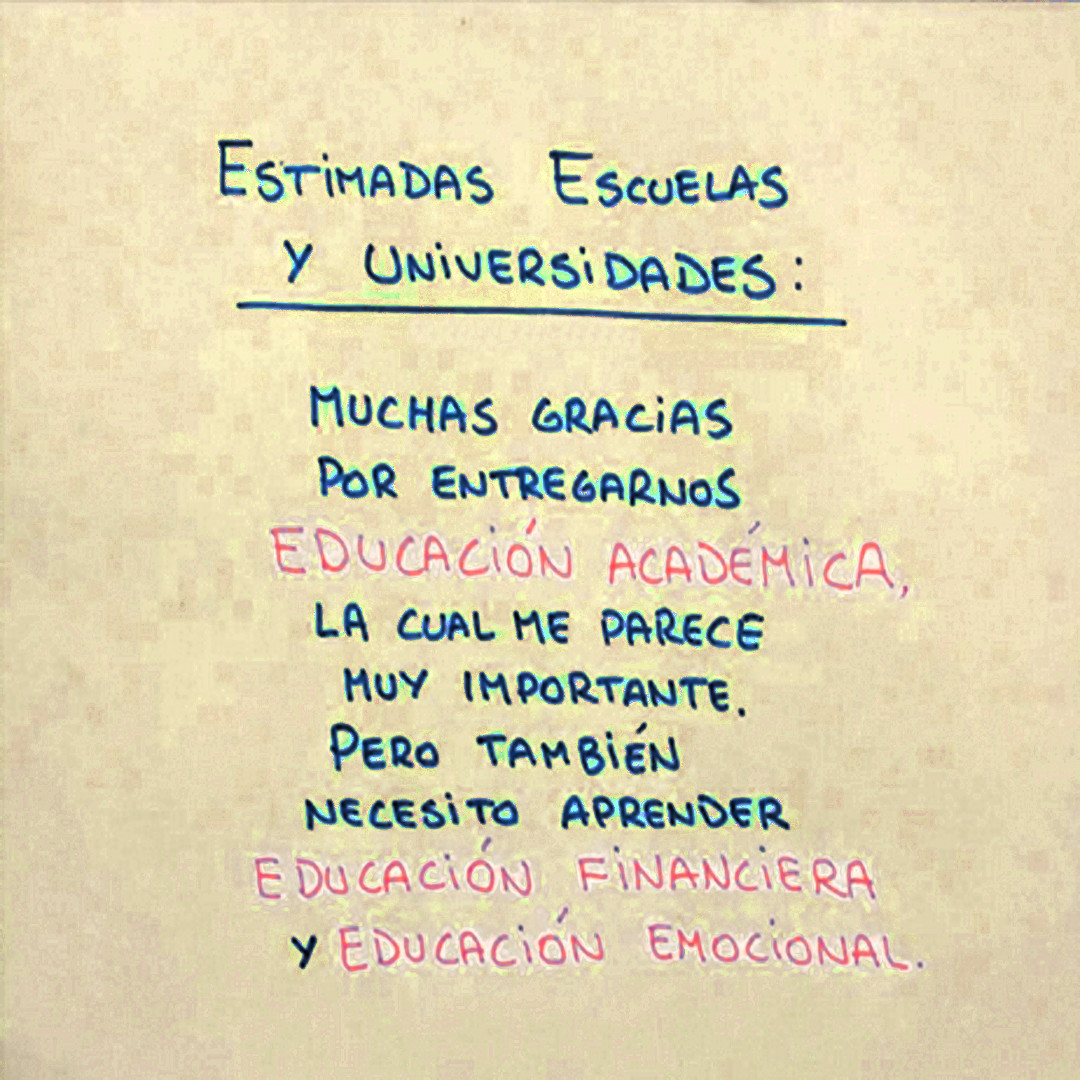 ESTIMADAS ESCUELAS
Y UNIVERSIDADES:
MUCHAS GRACIAS
POR ENTREGARNOS
EDUCACIÓN ACADÉMICA,
LA CUAL ME PARECE
MUY IMPORTANTE.
PERO TAMBIÉN
NECESITO APRENDER
EDUCACIÓN FINANCIERA
Y EDUCACIÓN EMOCIONAL.